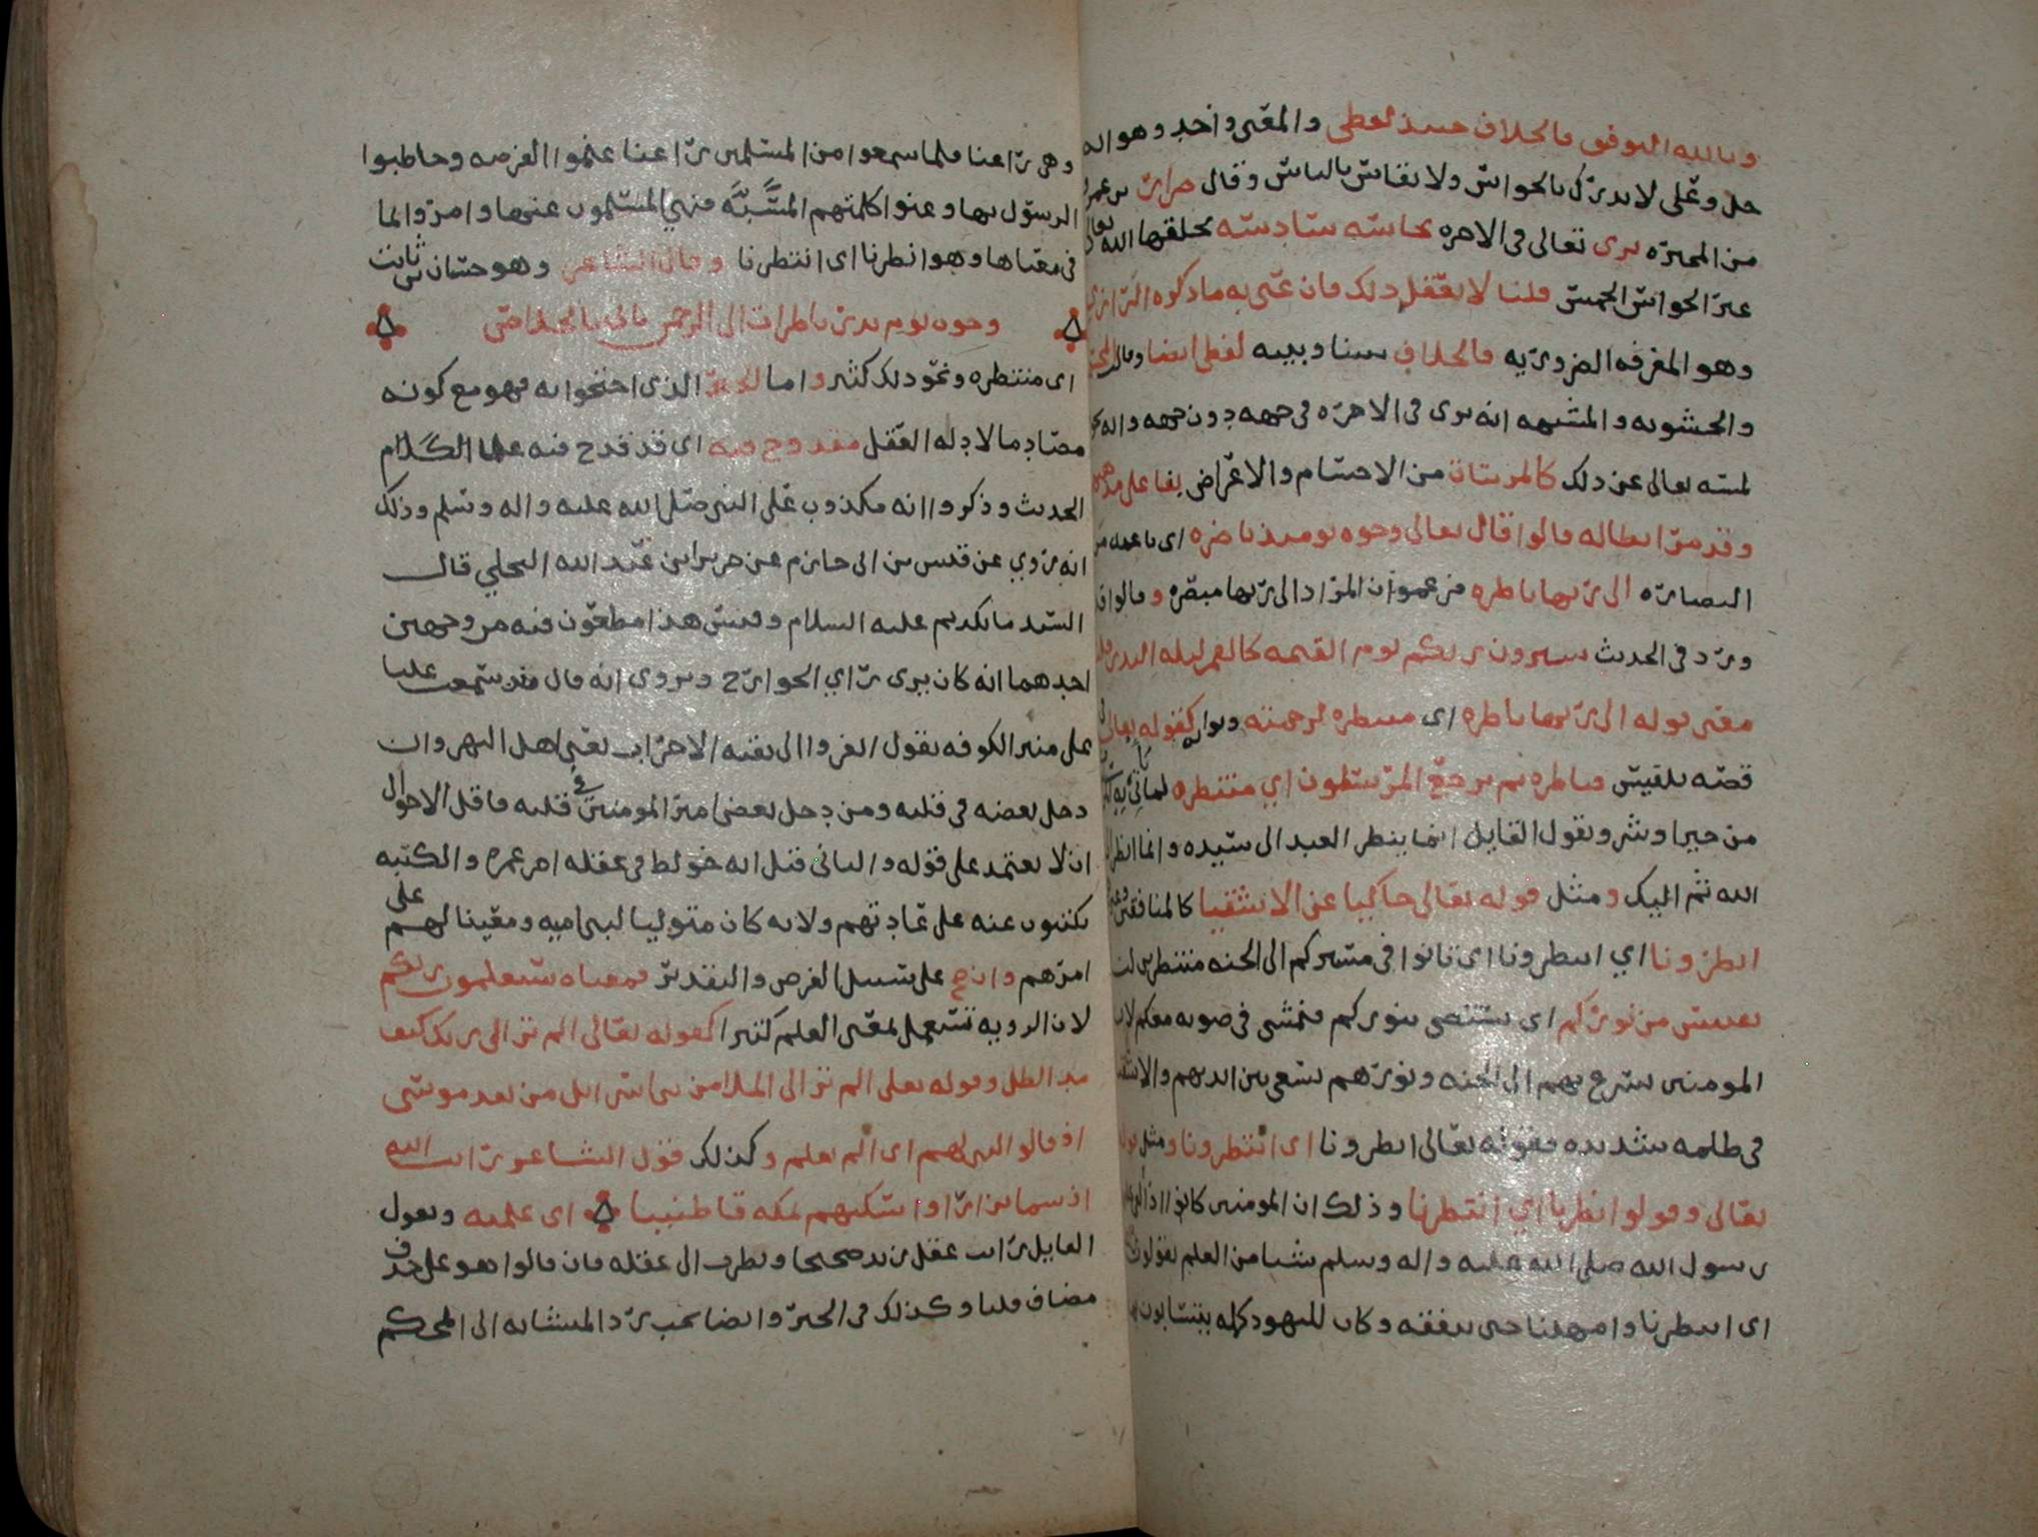 وبالله التوفيق فالخلاف حينئذ لفظي والمعنى واحد وهو انه
جل وعلى لا يدرك بالحواس ولا يقاس بالناس وقال ضرار بن عمرو
من المجبره يرى تعالى في الاخره بحاسه سادسه يخلقها الله تعالى
غير الحواس الخمس قلنا لا يعقل ذلك فان عنى به ما ذكره الرازي
وهو المعرفه الضروريه فالخلاف بيننا وبينه لفظي ايضا وقالت
والحشويه والمشبهه انه يرى في الاخره في جهه دون جهه وانه
لمسه تعالى عن ذلك كالمرئيات من الاجسام والاعراض بقا على مذهبهم
وقد مر ابطاله قالوا قال تعالى وجوه يومئذ ناضره اي ناعمه من
النضاره الى ربها ناظره فزعموا ان المراد الى ربها مبصره وقالوا
ورد في الحديث سترون ربكم يوم القيمه كالقمر ليله البدر قلنا
معنى قوله الى ربها ناظره اي منتظره لرحمته وثوابه كقوله تعالى في
قصه بلقيس فناظره بم يرجع المرسلون اي منتظره لما ياتي به
من خير او شر ويقول القايل انما ينظر العبد الى سيده وانما انظر الى
الله ثم اليك ومثل قوله تعالى حاكيا عن الاشقيا كالمنافقين
انظرونا اي انتظرونا اي تانوا في مسيركم الى الجنه منتظرين لنا
نقتبس من نوركم اي نستضي بنوركم فنمشي في ضوءه معكم لان
المومنين يسرع بهم الى الجنه ونورهم يسعى بين ايديهم والاشقيا
في ظلمه شديده فقوله تعالى انظرونا اي انتظرونا ومثل قوله
تعالى وقولوا انظرنا اي انتظرنا وذلك ان المومنين كانوا اذا القى
رسول الله صلى الله عليه واله وسلم شيا من العلم يقولون
اي انتظرنا وامهلنا حتى نفقه وكان لليهود كلمه يتسابون بها
وهي راعنا فلما سمعوا من المسلمين راعنا علموا الفرصه وخاطبوا
الرسول بها وعنوا كلمتهم المسبه فنهي المسلمون عنها وامروا بما
في معناها وهو انظرنا اي انتظرنا وقال الشاعر وهو حسان بن ثابت
وجوه يوم بدر ناظرات الى الرحمن ياتي بالخلاص
اي منتظره ونحو ذلك كثير واما الخبر الذي احتجوا به فهو مع كونه
مصادما لادله العقل مقدوح فيه اي قد قدح فيه علما الكلام
الحديث وذكروا انه مكذوب على النبي صلى الله عليه واله وسلم وذلك
انه روي عن قيس بن ابي حازم عن جرير ابن عبد الله البجلي قال
السيد مانكديم عليه السلام وقيس هذا مطعون فيه من وجهين
احدهما انه كان يرى راي الخوارج ويروى انه قال منذ سمعت عليا
على منبر الكوفه يقول انفروا الى بقيه الاحزاب يعني اهل النهروان
دخل بغضه في قلبه ومن دخل بغض امير المومنين في قلبه فاقل الاحوال
ان لا يعتمد على قوله والثاني قيل انه خولط في عقله اخر عمره والكتبه
يكتبون عنه على عادتهم ولانه كان متوليا لبني اميه ومعينا لهم على
امرهم وان صح على سبيل الفرض والتقدير فمعناه ستعلمون ربكم
لان الرويه تستعمل لمعنى العلم كثيرا كقوله تعالى الم تر الى ربك كيف
مد الظل وقوله تعالى الم تر الى الملا من بني اسرائل من بعد موسى
اذ قالوا لنبي لهم اي الم تعلم وكذلك قول الشاعر رايت الله
اذ سمى نزارا واسكنهم بمكه قاطنينا اي علمته ويقول
القايل رايت عقل زيد صحيحا ونظرت الى عقله فان قالوا هو على حذف
مضاف قلنا وكذلك في الخبر وايضا يجب رد المتشابه الى المحكم